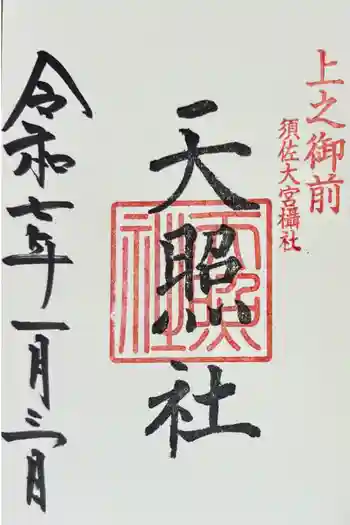 上之御前
須佐大宮攝社
天照社
天照社
令和七年一月三月